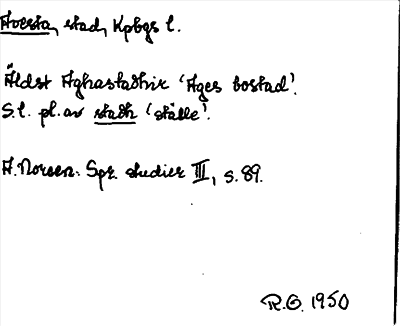 Avesta, stad, Kpbgs l.
Äldst Aghastadhir 'Ages bostad'.
S.l. pl. av stadh 'ställe'.
A. Noreen. Spr. studier III, s. 89.
R.O. 1950